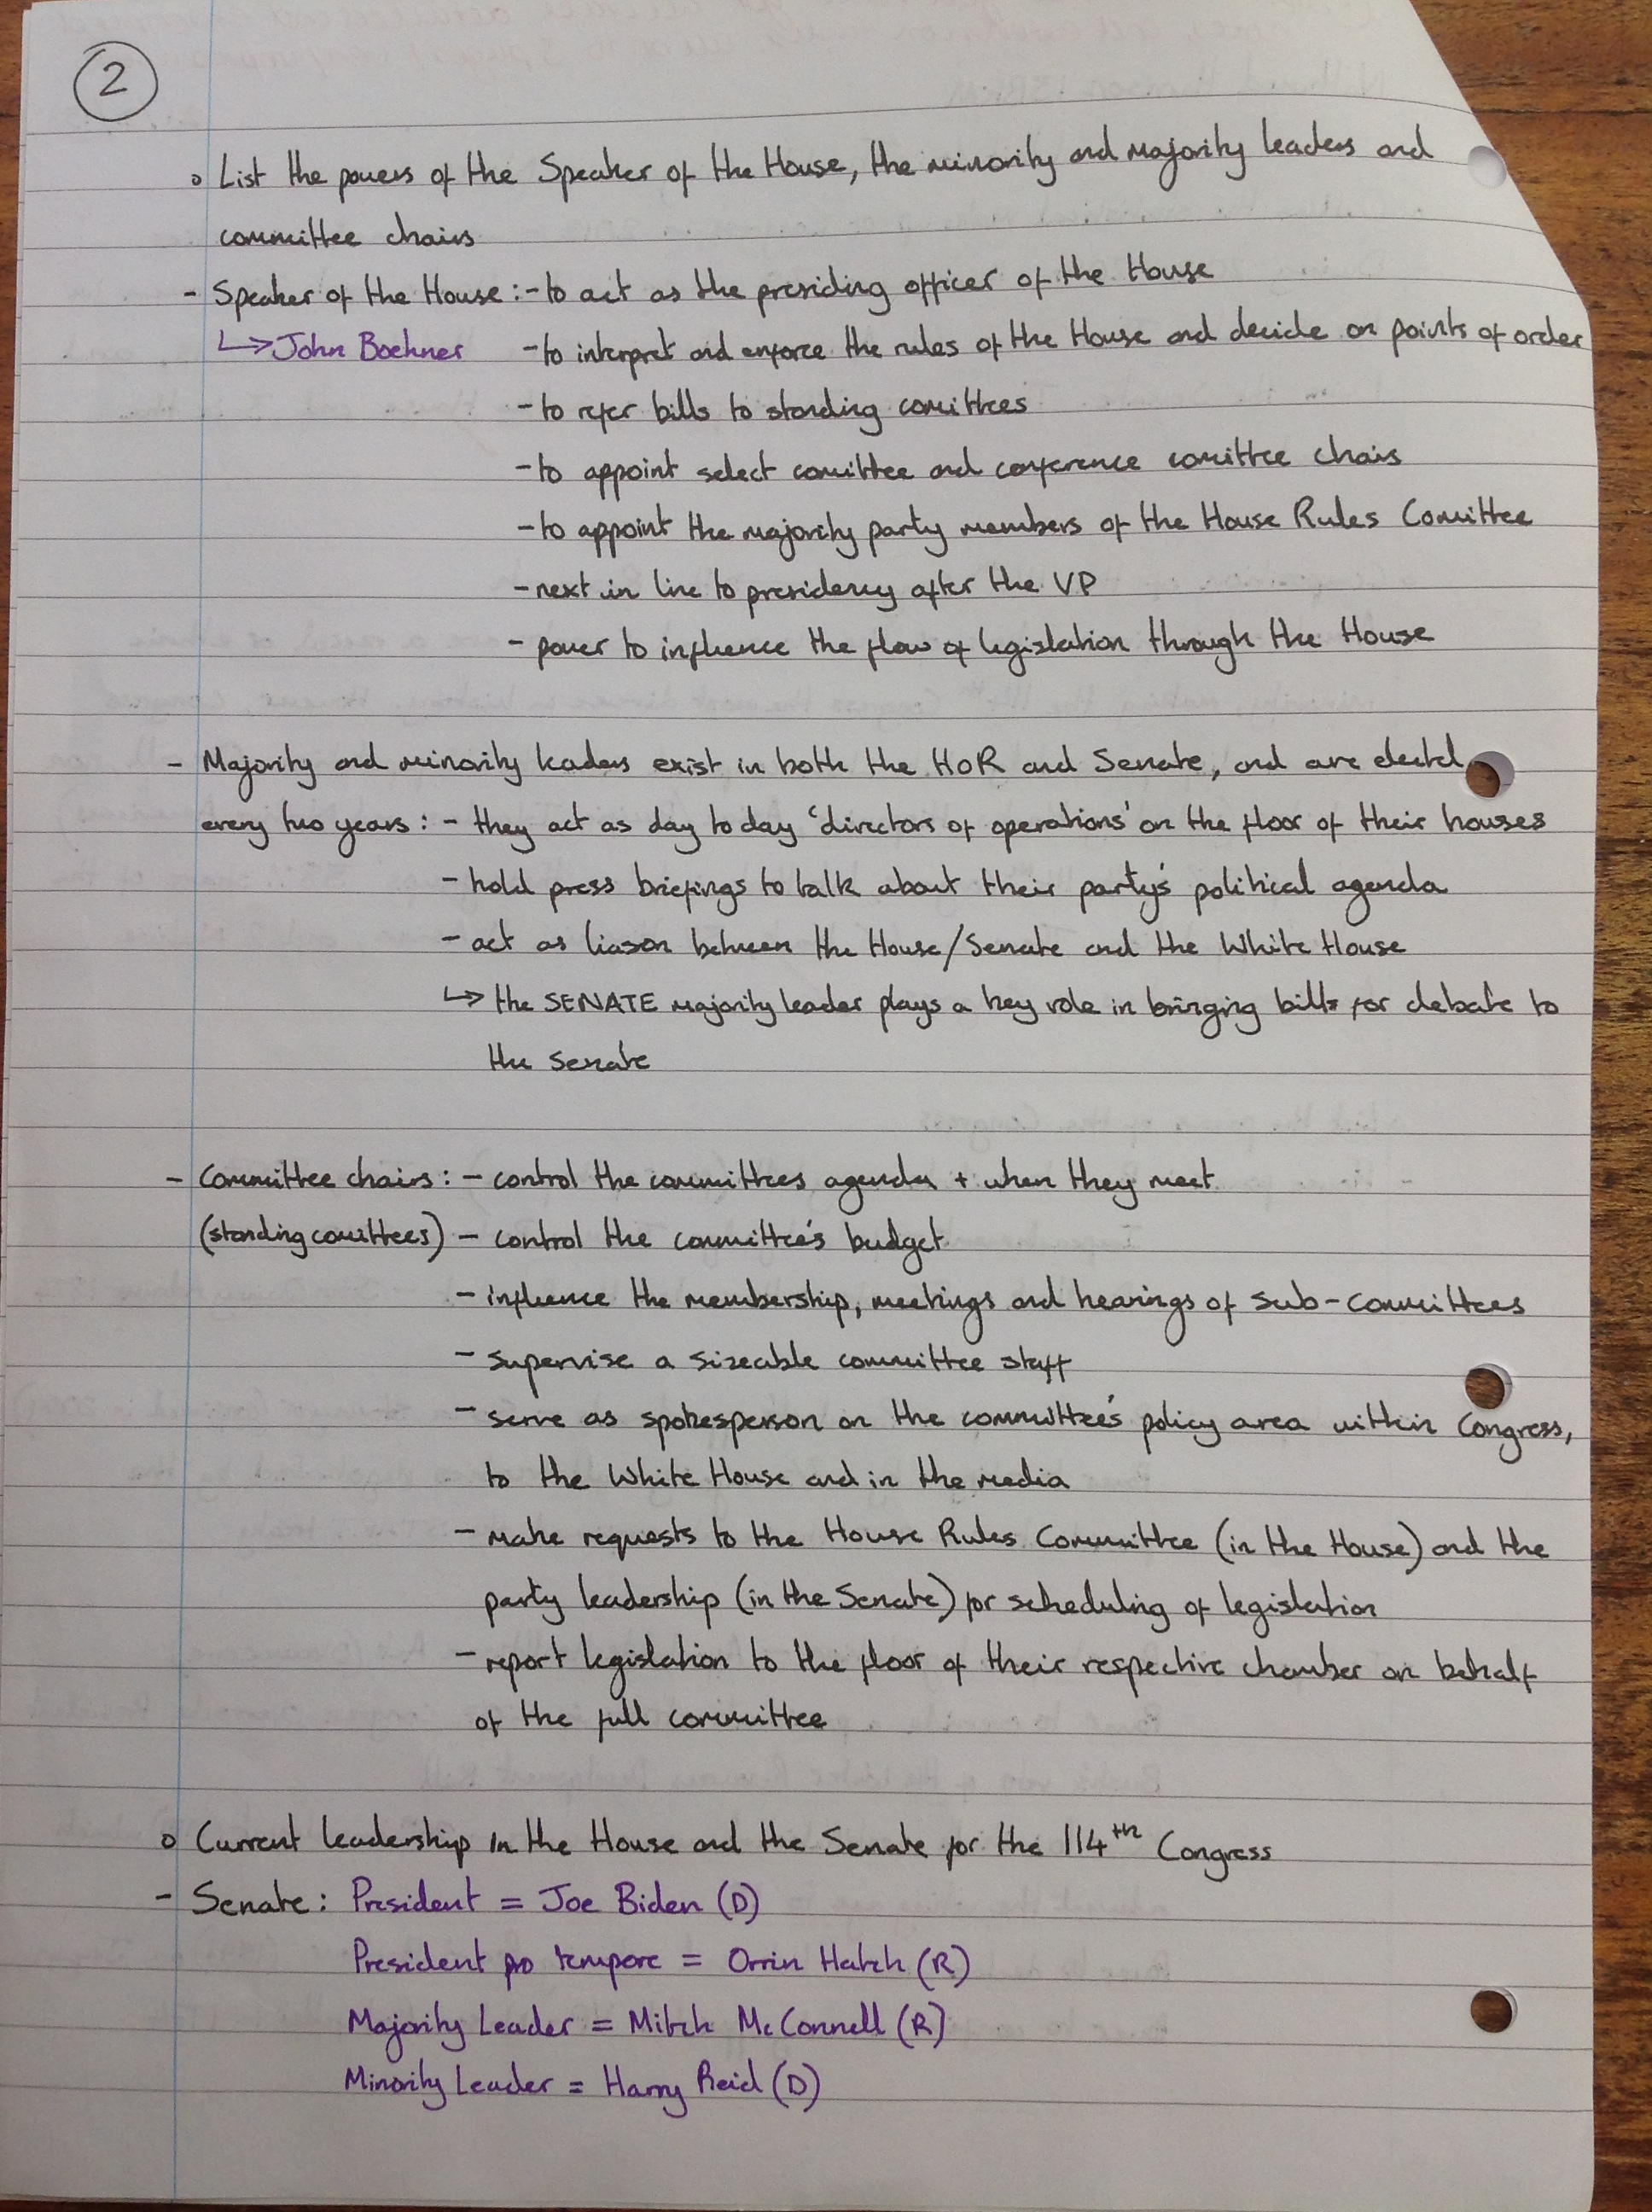 2
o List the powers of the Speaker of the House, the minority and majority leaders and
committee chairs
- Speaker of the House :- to act as the presiding officer of the House
↳ John Boehner - to interpret and enforce the rules of the House and decide on points of order
- to refer bills to standing comittees
- to appoint select comittee and conference comittee chairs
- to appoint the majority party members of the House Rules Comittee
- next in line to presidency after the VP
- power to influence the flow of legislation through the House
- Majority and minority leaders exist in both the HoR and Senate, and are elected
every two years : - they act as day to day 'directors of operations' on the floor of their houses
- hold press briefings to talk about their party's political agenda
- act as liason between the House/Senate and the White House
↳ the SENATE majority leader plays a key role in bringing bills for debate to
the Senate
- Committee chairs : - control the committees agenda + when they meet
(standing comittees) - control the committee's budget
- influence the membership, meetings and hearings of sub-committees
- supervise a sizeable committee staff
- serve as spokesperson on the committee's policy area within Congress,
to the White House and in the media
- make requests to the House Rules Committee (in the House) and the
party leadership (in the Senate) for scheduling of legislation
- report legislation to the floor of their respective chamber on behalf
of the full committee
o Current leadership in the House and the Senate for the 114th Congress
- Senate : President = Joe Biden (D)
President pro tempore = Orrin Hatch (R)
Majority Leader = Mitch McConnell (R)
Minority Leader = Harry Reid (D)